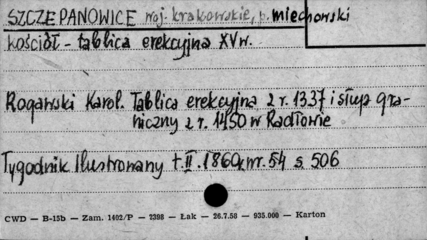 SZCZEPANOWICE woj. krakowskie, p. miechowski
kościół - tablica erekcyjna XV w.
Rogawski Karol. Tablica erekcyjna z r. 1337 i słup gra-
niczny z r. 1450 w Radłowie
Tygodnik Ilustrowany t. II. 1860, nr. 54 s. 506
CWD — B-15b — Zam. 1402/P — 2398 — Łak — 26.7.50 — 935.000 — Karton